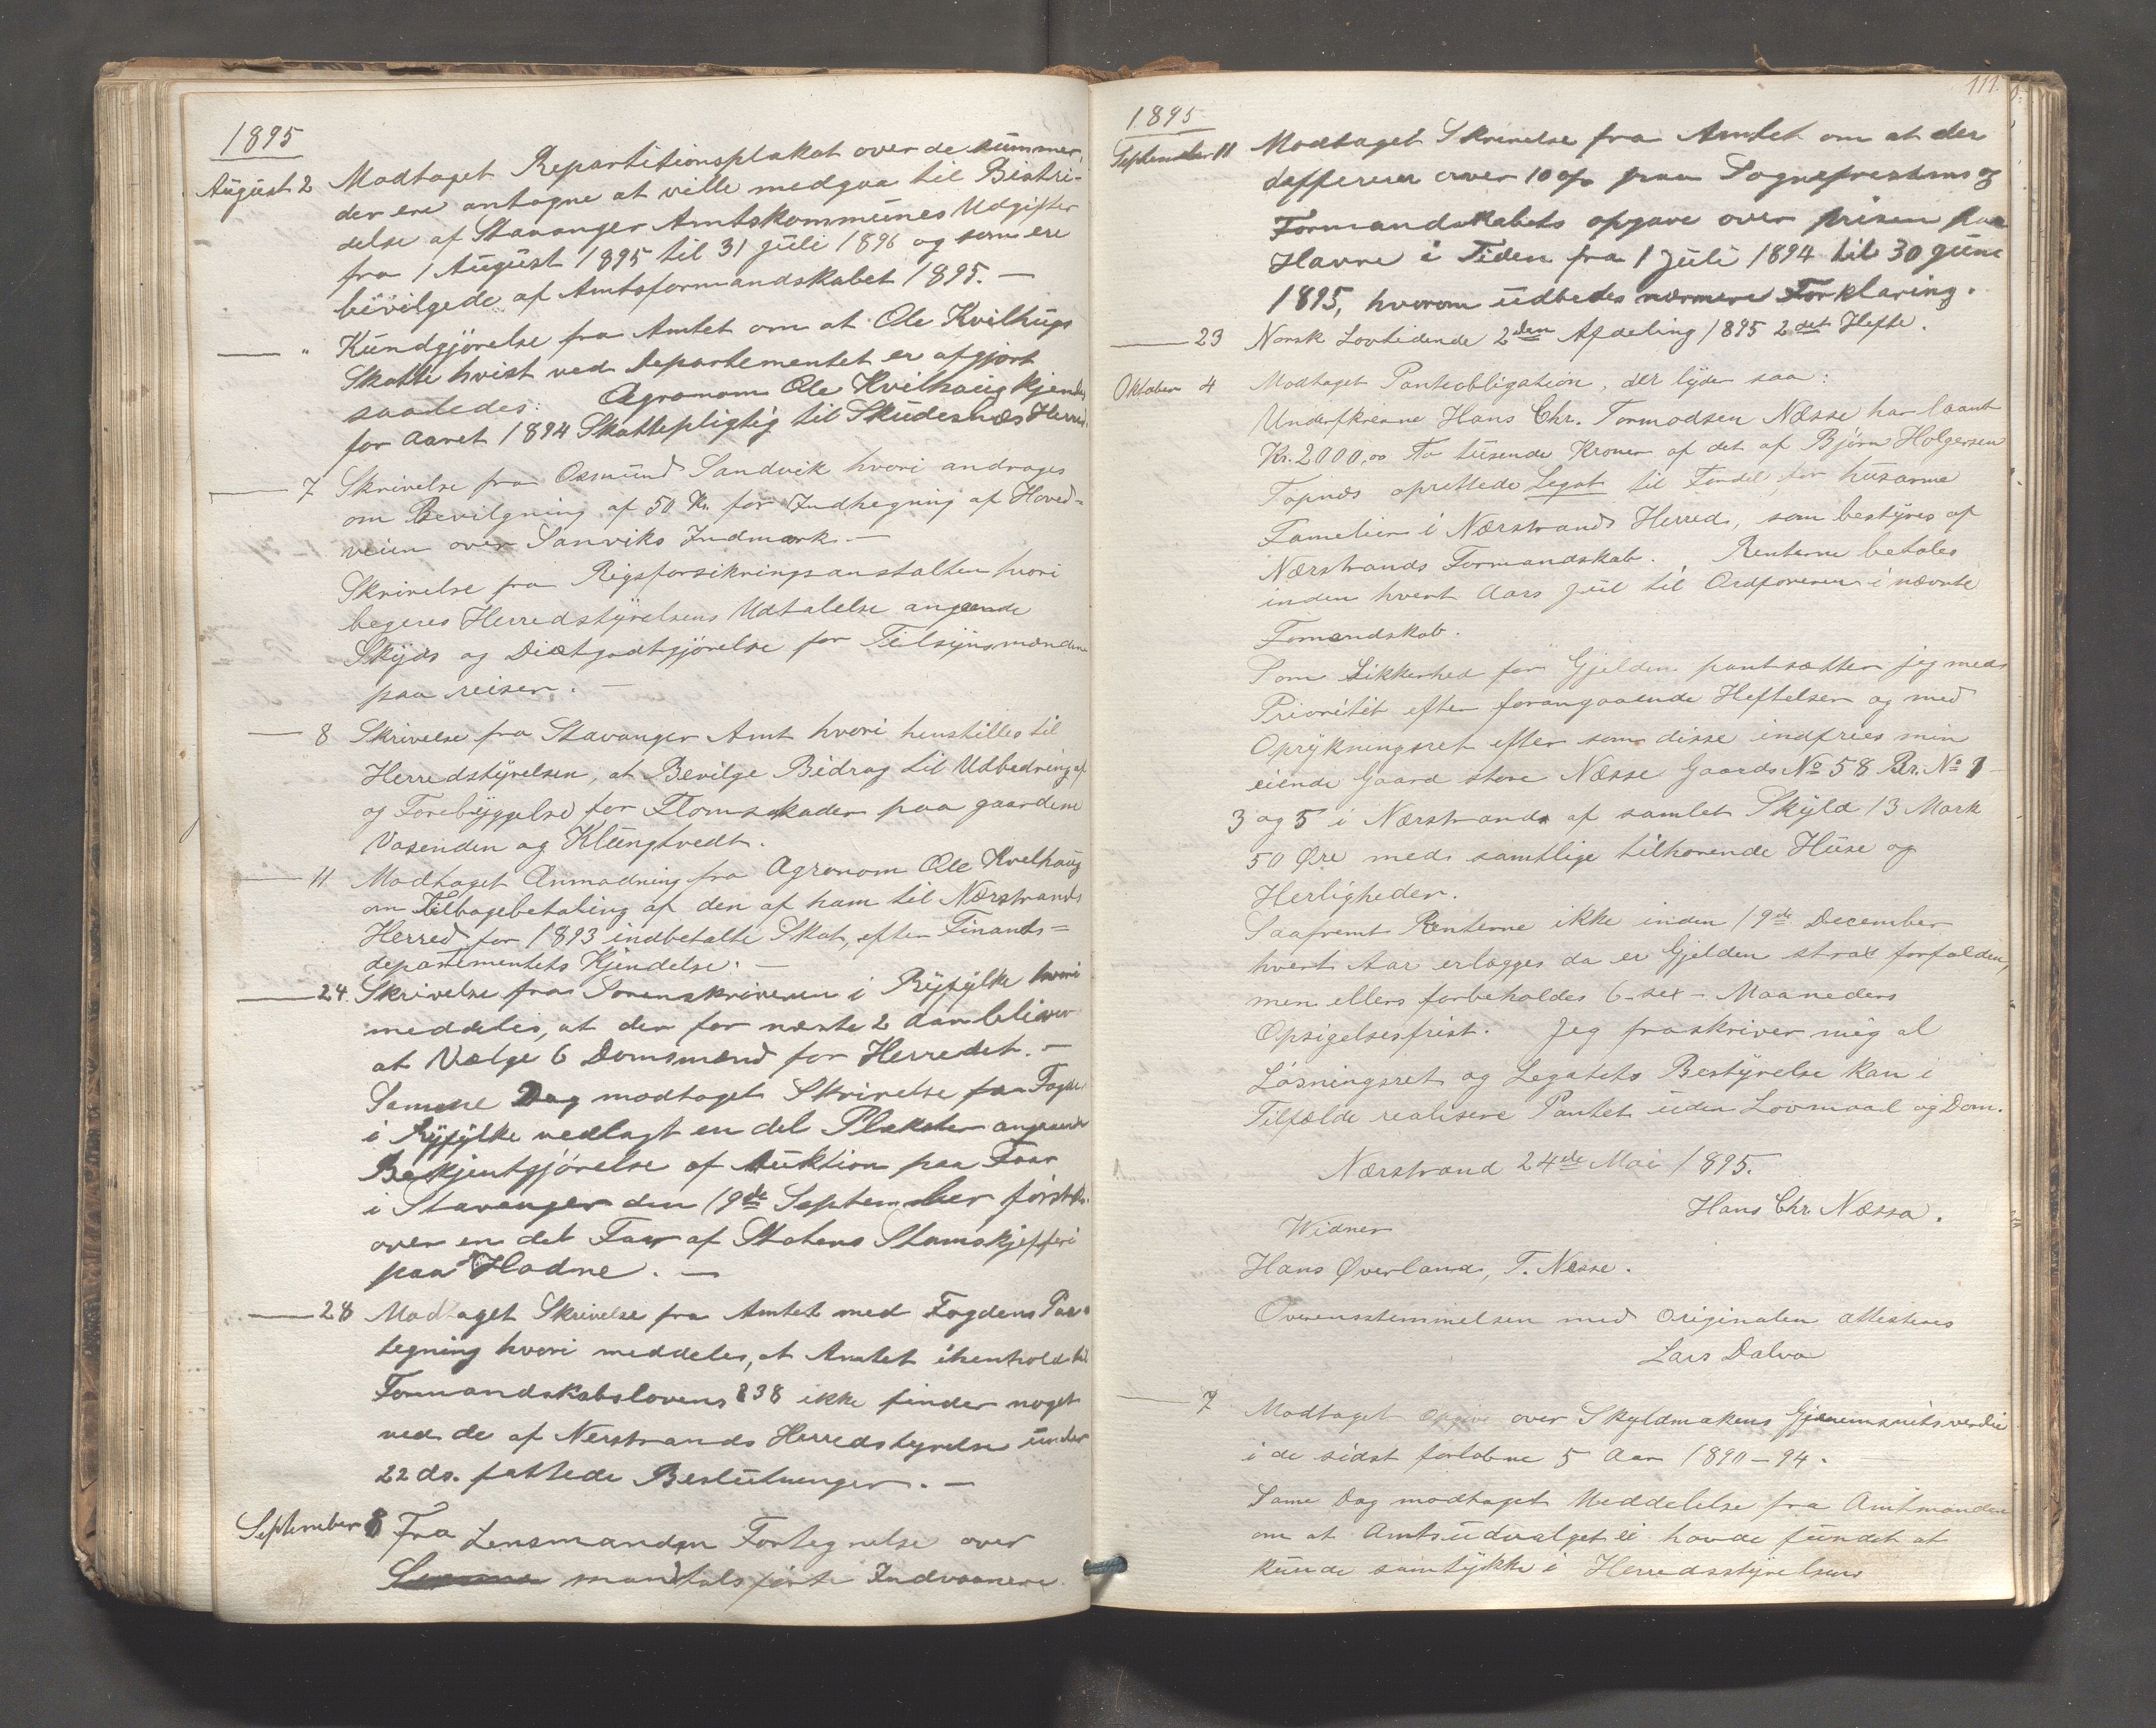 1895
August 2 Modtaget Repartitionsplakat over de summer,
der ere antagne at ville medgaa til Bistri-
delse af Stavanger Amtskommunes Udgifter
fra 1 August 1895 til 31 Juli 1896 og som ere
bevilgede af Amtsformandskabet 1895. —
— " Kundgjörelse fra Amtet om at Ole Kvilhugs
Skatte hvist ved Departementet er afgjort
saaledes: Agronom Ole Kvilhaug kjendes
for Aaret 1894 Skattepligtig til Skudesnæs Herred.
— 7 Skrivelse fra Osmund Sandvik hvori andrages
om Bevilgning af 50 Kr. for Indhegning af Hoved-
veien over Sanviks Indmark. —
Skrivelse fra Rigsforsikringsanstalten hvori
begeres Herredstyrelsens Udtalelse angaaende
Skyds og Diætgodtgjörelse for Tilsynsmænden
paa reiser. —
— 8 Skrivelse fra Stavanger Amt hvori henstilles til
Herredstyrelsen, at Bevilge Bidrag til Udbedring af
og Forebyggelse for Flomskader paa gaardene
Vasenden og Klungtvedt.
— 11 Modtaget Anmodning fra Agronom Ole Kvelhaug
om Tilbagebetaling af den af ham til Nærstrands
Herred for 1893 indbetalte Skat, efter Finants=
departementets Kjendelse. —
— 24. Skrivelse fra Sorenskriveren i Ryfylke hvori
meddeles, at der for næste 2 Aar bliver
at Vælge 6 Domsmænd for Herredet. —
Samme Dag modtaget Skrivelse fra Fogden
i Ryfylke vedlagt en del Plakater angaaende
Bekjentgjörelse af Auktion paa Faar
i Stavanger den 19de September förstk.
over en del Faar af Statens Stamskjefferi
paa Hodne. —
— 28 Modtaget Skrivelse fra Amtet med Fogdens Paa-
tegning hvori meddeles, at Amtet ihenhold til
Formandskabslovens § 38 ikke finder noget
ved de af Nerstrands Herredstyrelse under
22 ds. fattede Beslutninger. —
September 8 Fra Lensmanden Fortegnelse over
mandtalsförte Indvaanere.
111.
1895
September 11 Modtaget Skrivelse fra Amtet om at der
differerer over 10 o/o paa Sogneprestens og
Formandskabets opgave over prisen paa
Havre i Tiden fra 1 Juli 1894 til 30 June
1895, hvorom udbedes nærmere Forklaring.
— 23 Norsk Lovtidende 2den Afdeling 1895 2det Hefte.
Oktober 4 Modtaget Panteobligation, der lyder saa:
Undertkrevne Hans Chr. Tormodsen Næsse har laant
Kr. 2000,00 To tusende Kroner af det af Björn Holgersen
Topnes oprettede Legat til Fordel for husarme
Familier i Nærstrands Herred, som bestyres af
Nærstrands Formandskab. Renterne betales
inden hvert Aars Jul til Ordföreren i nævnte
Fomandskab.
Som Sikkerhed for Gjelden pantsætter jeg med
Prioritet efter forangaaende Heftelser og med
Oprykningsret efter som disse indfries min
eiende Gaard store Næsse Gaards No 58 Br. No 1
3 og 5 i Nærstrand af samlet Skyld 13 Mark
50 Øre med samtlige tilhørende Huse og
Herligheder.
Saafremt Renterne ikke inden 19de December
hvert Aar erlægges da er Gjelden strax forfalden,
men ellers forbeholdes 6-sex- Maaneders
Opsigelsesfrist. Jeg fraskriver mig al
Løsningsret og Legatets Bestyrelse kan i
Tilfælde realisere Pantet uden Lovmaal og Dom.
Nærstrand 24de Mai 1895.
Hans Chr. Næssa.
Widner
Hans Øverland, T. Nesse.
Overensstemmelsen med originalen attesteres
Lars Dalva
— 7 Modtaget Opgive over Skyldmakens Gjennemsnitsverdie
i de sidst forløbne 5 Aar 1890-94.
Same Dag modtaget Meddelelse fra Amtmanden
om at Amtsudvalget ei havde fundet at
kunde samtykke i Herredsstyrelsens